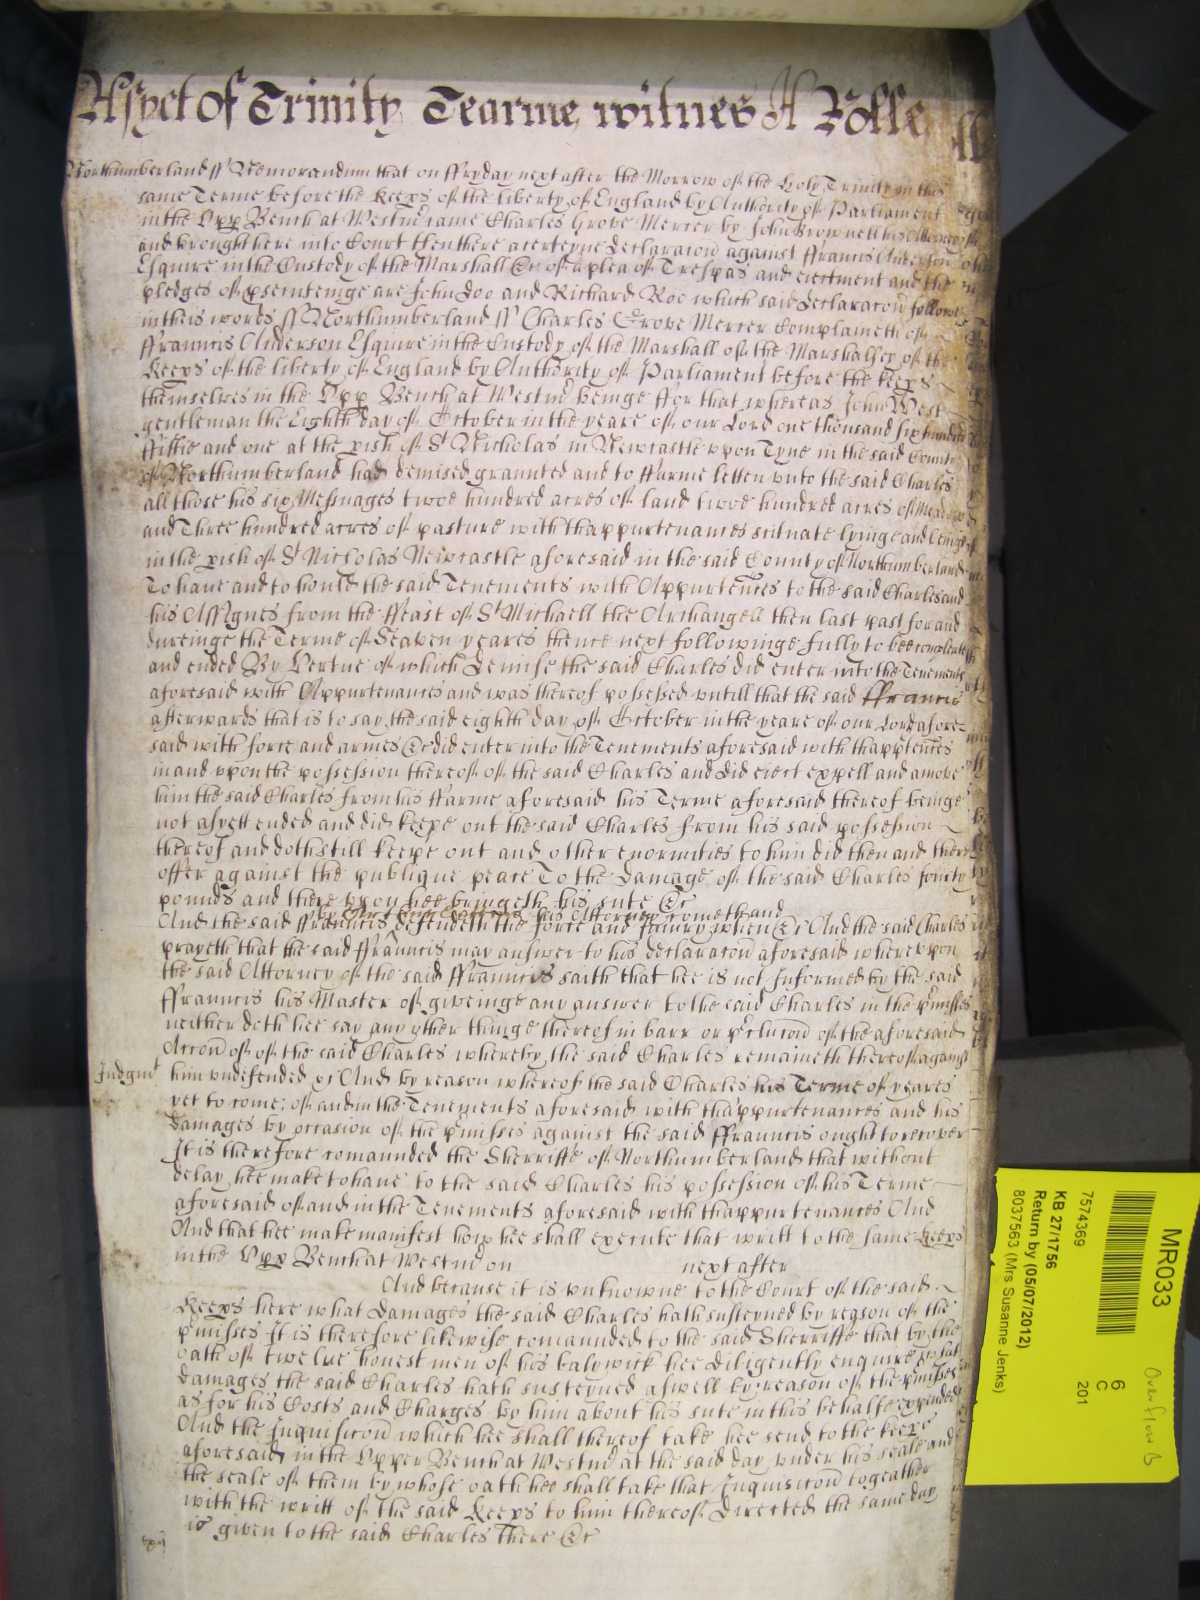 Asyet of Trinity Tearme witnes H Rolle
Northumberland ss Memorandum that on ffryday next after the Morrow of the Holy Trinity in this
same Terme before the Keeps of the liberty of England by Authority of Parliament
in the Upp Bench at Westmr came Charles Grove Mercer by John Brownell his Attorney
and brought here into Court then there a certeyne declaracon against ffrancis Anderson
Esquire in the Custody of the Marshall &c of a plea of Trespas and eiectment and the
pledges of psecuteinge are John Doo and Richard Roo which said declaracon followes
in theis words ss Northumberland ss Charles Grove Mercer Complaineth of
ffranncis Anderson Esquire in the Custody of the Marshall of the Marshalsey of the
Keeps of the liberty of England by Authority of Parliament before the keeps
themselves in the Upp Bench at Westmr beinge ffor that whereas John West
gentleman the Eighth day of October in the yeare of our Lord one thousand six hundred
ffiftie and one at the pish of St Nicholas in Newcastle upon Tyne in the said County
of Northumberland had demised graunted and to ffarme letten unto the said Charles
all those his six Messuages twoe hundred acres of land twoe hundred acres of Meadow
and Three hundred acres of pasture with thappurtenances scituate lyinge and beinge
in the pish of St Nicholas Newcastle aforesaid in the said County of Northumberland
To have and to hould the said Tenements with Appurtences to the said Charles and
his Assignes from the ffeast of St Michaell the Archangell then last past for and
dureinge the Terme of Seaven yeares thence next followinge fully to bee compleate
and ended By Vertue of which demise the said Charles did enter into the Tenements
aforesaid with Appurtenances and was thereof possessed untill that the said ffrancis
afterwards that is to say the said eighth day of October in the yeare of our Lord afore-
said with force and armes &c did enter into the Tenements aforesaid with thapptences
in and upon the possession thereof of the said Charles and did eiect expell and amove
him the said Charles from his ffarme aforesaid his Terme aforesaid thereof beinge
not asyett ended and did keepe out the said Charles from his said possession
thereof and doth still keepe out and other enormities to him did then and there
offer against the publique peace To the damage of the said Charles fourty
pounds and thereupon hee bringeth his sute &c
his Attorney cometh and
And the said ffranncis defendeth the force and Iniury when &c And the said Charles
prayeth that the said ffranncis may answer to his declaracon aforesaid whereupon
the said Attorney of the said ffranncis saith that hee is not Informed by the said
ffranncis his Master of giveinge any answer to the said Charles in the pmisses
neither doth hee say any other thinge thereof in barr or pclucon of the aforesaid
Accon of of the said Charles whereby the said Charles remaineth thereof against
Judgmt
him undefended &c And by reason whereof the said Charles his Terme of yeares
yet to come of and in the Tenements aforesaid with thappurtenances and his
damages by occasion of the pmisses against the said ffranncis ought to recover
It is therefore comaunded the Sherriffe of Northumberland that without
delay hee make to have to the said Charles his possession of his Terme
aforesaid of and in the Tenements aforesaid with thappurtenances And
And that hee make manifest how hee shall execute that writt to the same keeps
in the Upp Bench at Westmr on next after
And because it is unknowne to the Court of the said
Keeps here what damages the said Charles hath susteyned by reason of the
pmisses It is therefore likewise comaunded to the said Sherriffe that by the
oath of twelve honest men of his balywick hee diligently enquire what
damages the said Charles hath susteyned aswell by reason of the pmisses
as for his Costs and Charges by him about his sute in this behalfe expended
And the Inquisicon which hee shall thereof take hee send to the keeps
aforesaid in the Upper Bench at Westmr at the said day under his seale and
the seale of them by whose oath hee shall take that Inquisicon togeather
with the writt of the said Keeps to him thereof directed the same day
is given to the said Charles there &c
MR033
7574369
KB 27/1756
Return by (05/07/2012)
8037563 (Mrs Susanne Jenks)
6
C
201
Overflow B